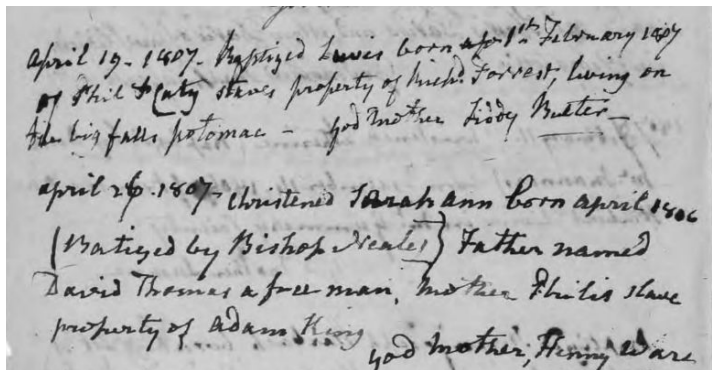 april 19 - 1807 - Baptized Lewis born 1th February 1807
of Phil & Caty slaves property of Richd Forrest, living on
the big falls potomac - god mother Liddy Butler -
april 26. 1807 - christened Sarah ann born april 1806
(Batized by Bishop Neales) Father named
David Thomas a free man, mother Philis slave
property of adam King
god mother, Henny Ware